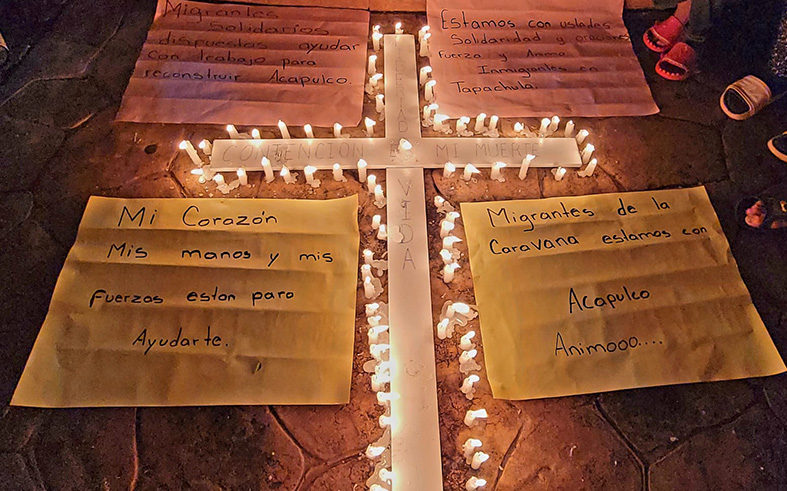 Migrantes
Solidarios
dispuestos ayudar
con trabajo para
reconstruir Acapulco.
Estamos con ustedes
Solidaridad y oracion
Fuerza y Animo
Inmigrantes en
Tapachula.
CONTENCION MI MUERTE
VIDA
Mi Corazón
Mis manos y mis
Fuerzas estan para
Ayudarte.
Migrantes de la
Caravana estamos con
Acapulco
Animooo....